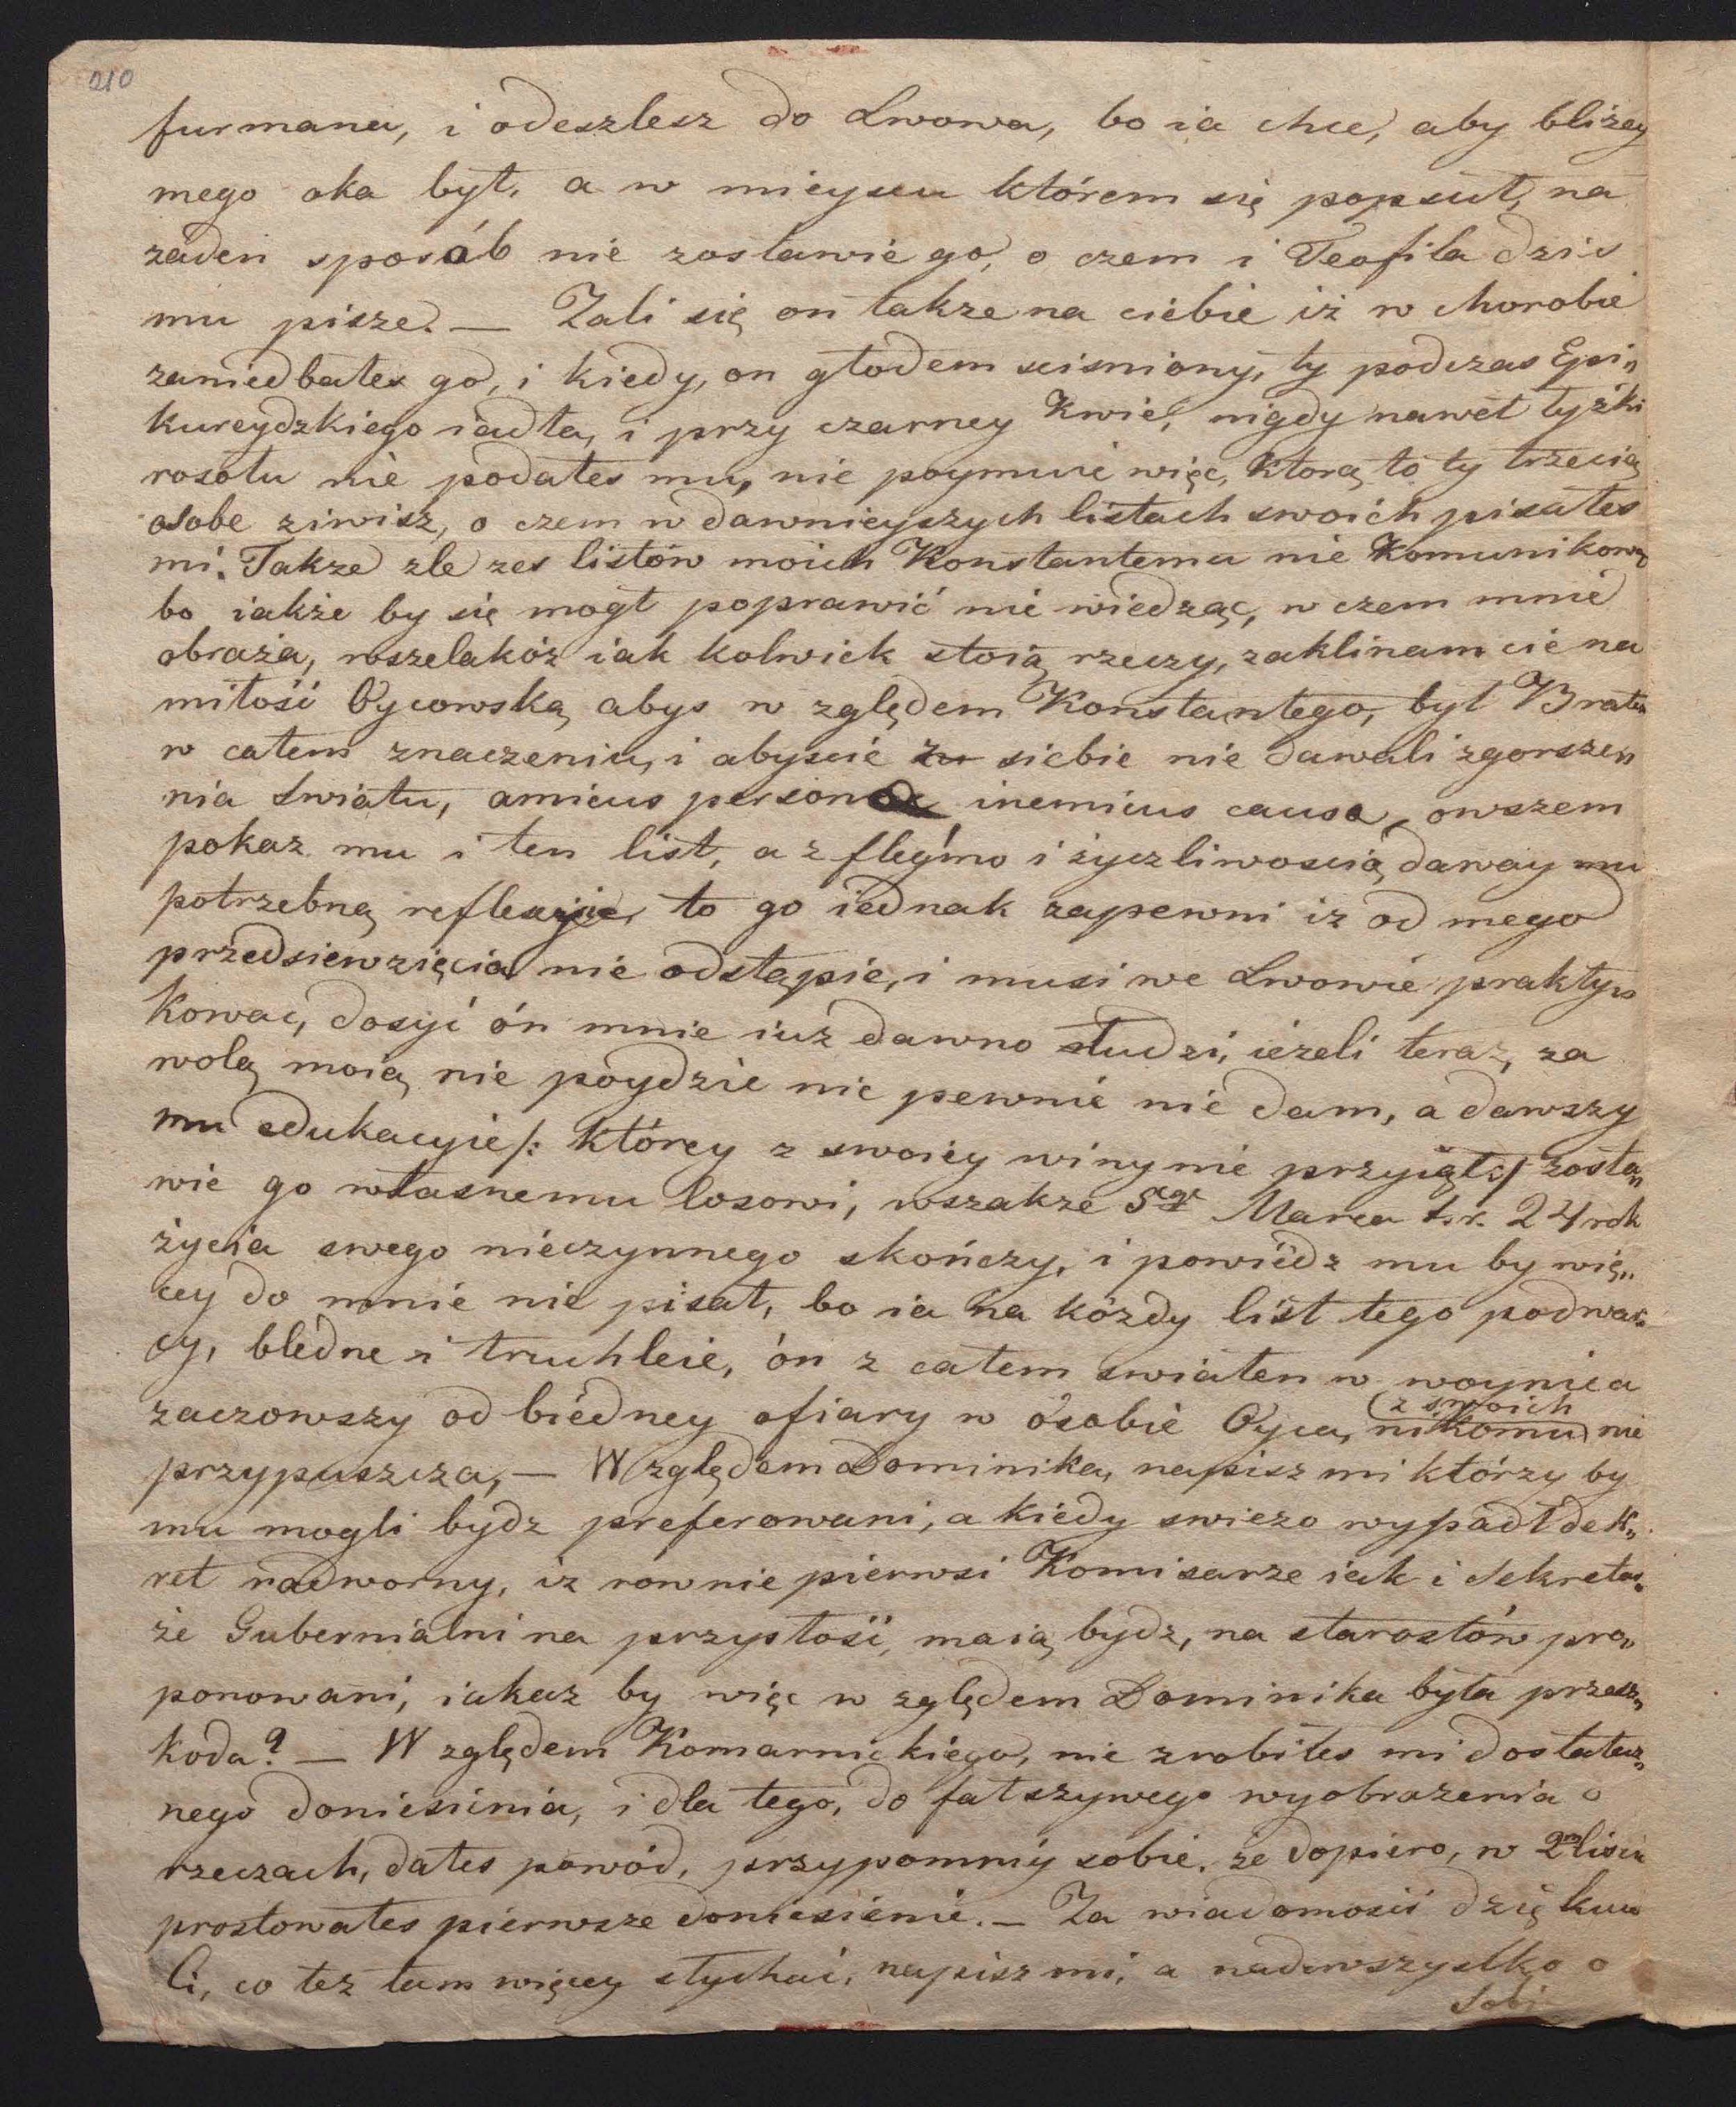 210
furmana, i odeszlesz do Lwowa, bo ia chce, aby bliżey
mego oka był, a w mieyscu którem się popsuł, na
zaden sposób nie zostawie go, o czem i Teofila dzis
mu pisze. — Żali się on takze na ciebie iż w chorobie
zaniedbałes go, i kiedy, on głodem scisniony, ty podczas Epi„
kureydzkiego iadła, i przy czarney Kwie, nigdy nawet łyżki
rosołu nie podałes mu, nie poymuie więc, ktorą to ty trzecią
osobe ziwisz, o czem w dawnieyszych listach swoich pisałes
mi. Takze zle zes listów moich Konstantemu nie Komunikow
bo iakże by się mogł poprawić nie wiedząc, w czem mnie
obraża, wszelakóz iak kolwiek stoią rzeczy, zaklinam cie na
miłość Oycowską abys w zględem Konstantego, był Bratem
w całem znaczeniu, i abyscie siebie nie dawali zgorsze„
nia swiatu, amicus persona inemicus causa, owszem
pokaz mu i ten list, a z flegmo i życzliwoscią daway mu
potrzebną reflexyie, to go iednak zapewni iz od mego
przedsiewzięcia nie odstąpie, i musi we Lwowie prakty„
kowac, dosyć ón mnie iuz dawno łudzi, ieżeli teraz, za
wolą moią nie poydzie nic pewnie nie dam, a dawszy
mu edukacyie /: którey z swoiey winy nie przyiął :/ zosta„
wie go własnemu losowi, wszakze 5go Marca t.r. 24 rok
życia swego nieczynnego skończy, i powiedz mu by wię„
cey do mnie nie pisał, bo ia na kózdy list tego podwar„
cy, bledne i truchleie, ón z całem swiatem w woynie a
zaczowszy od biédney ofiary w ósobie Oyca, nikomu z swoich nie
przypuszcza, — W zględem Dominika, napisz mi którzy by
mu mogli bydz preferowani, a kiedy swiezo wypadł dek„
ret nadworny, iz rownie pierwsi Komisarze iak i Sekreta„
że Guberniálni na przysłość, maią bydz, na starostów pro„
ponowani, iakaz by więc w zględem Dominika była przesz„
koda? — W zględem Komarnickiego, nie zrobiłes mi dostatecz„
nego doniesienia, i dla tego, do fałszywego wyobrażenia o
rzeczach, dałes powód, przypomniy sobie, że dopiero, w 2m liscie
prostowałes pierwsze doniesienie. — Za wiadomość dziękuie
Ci, co tez tam więcey słychać, napisz mi, a nadewszystko o
Sobi